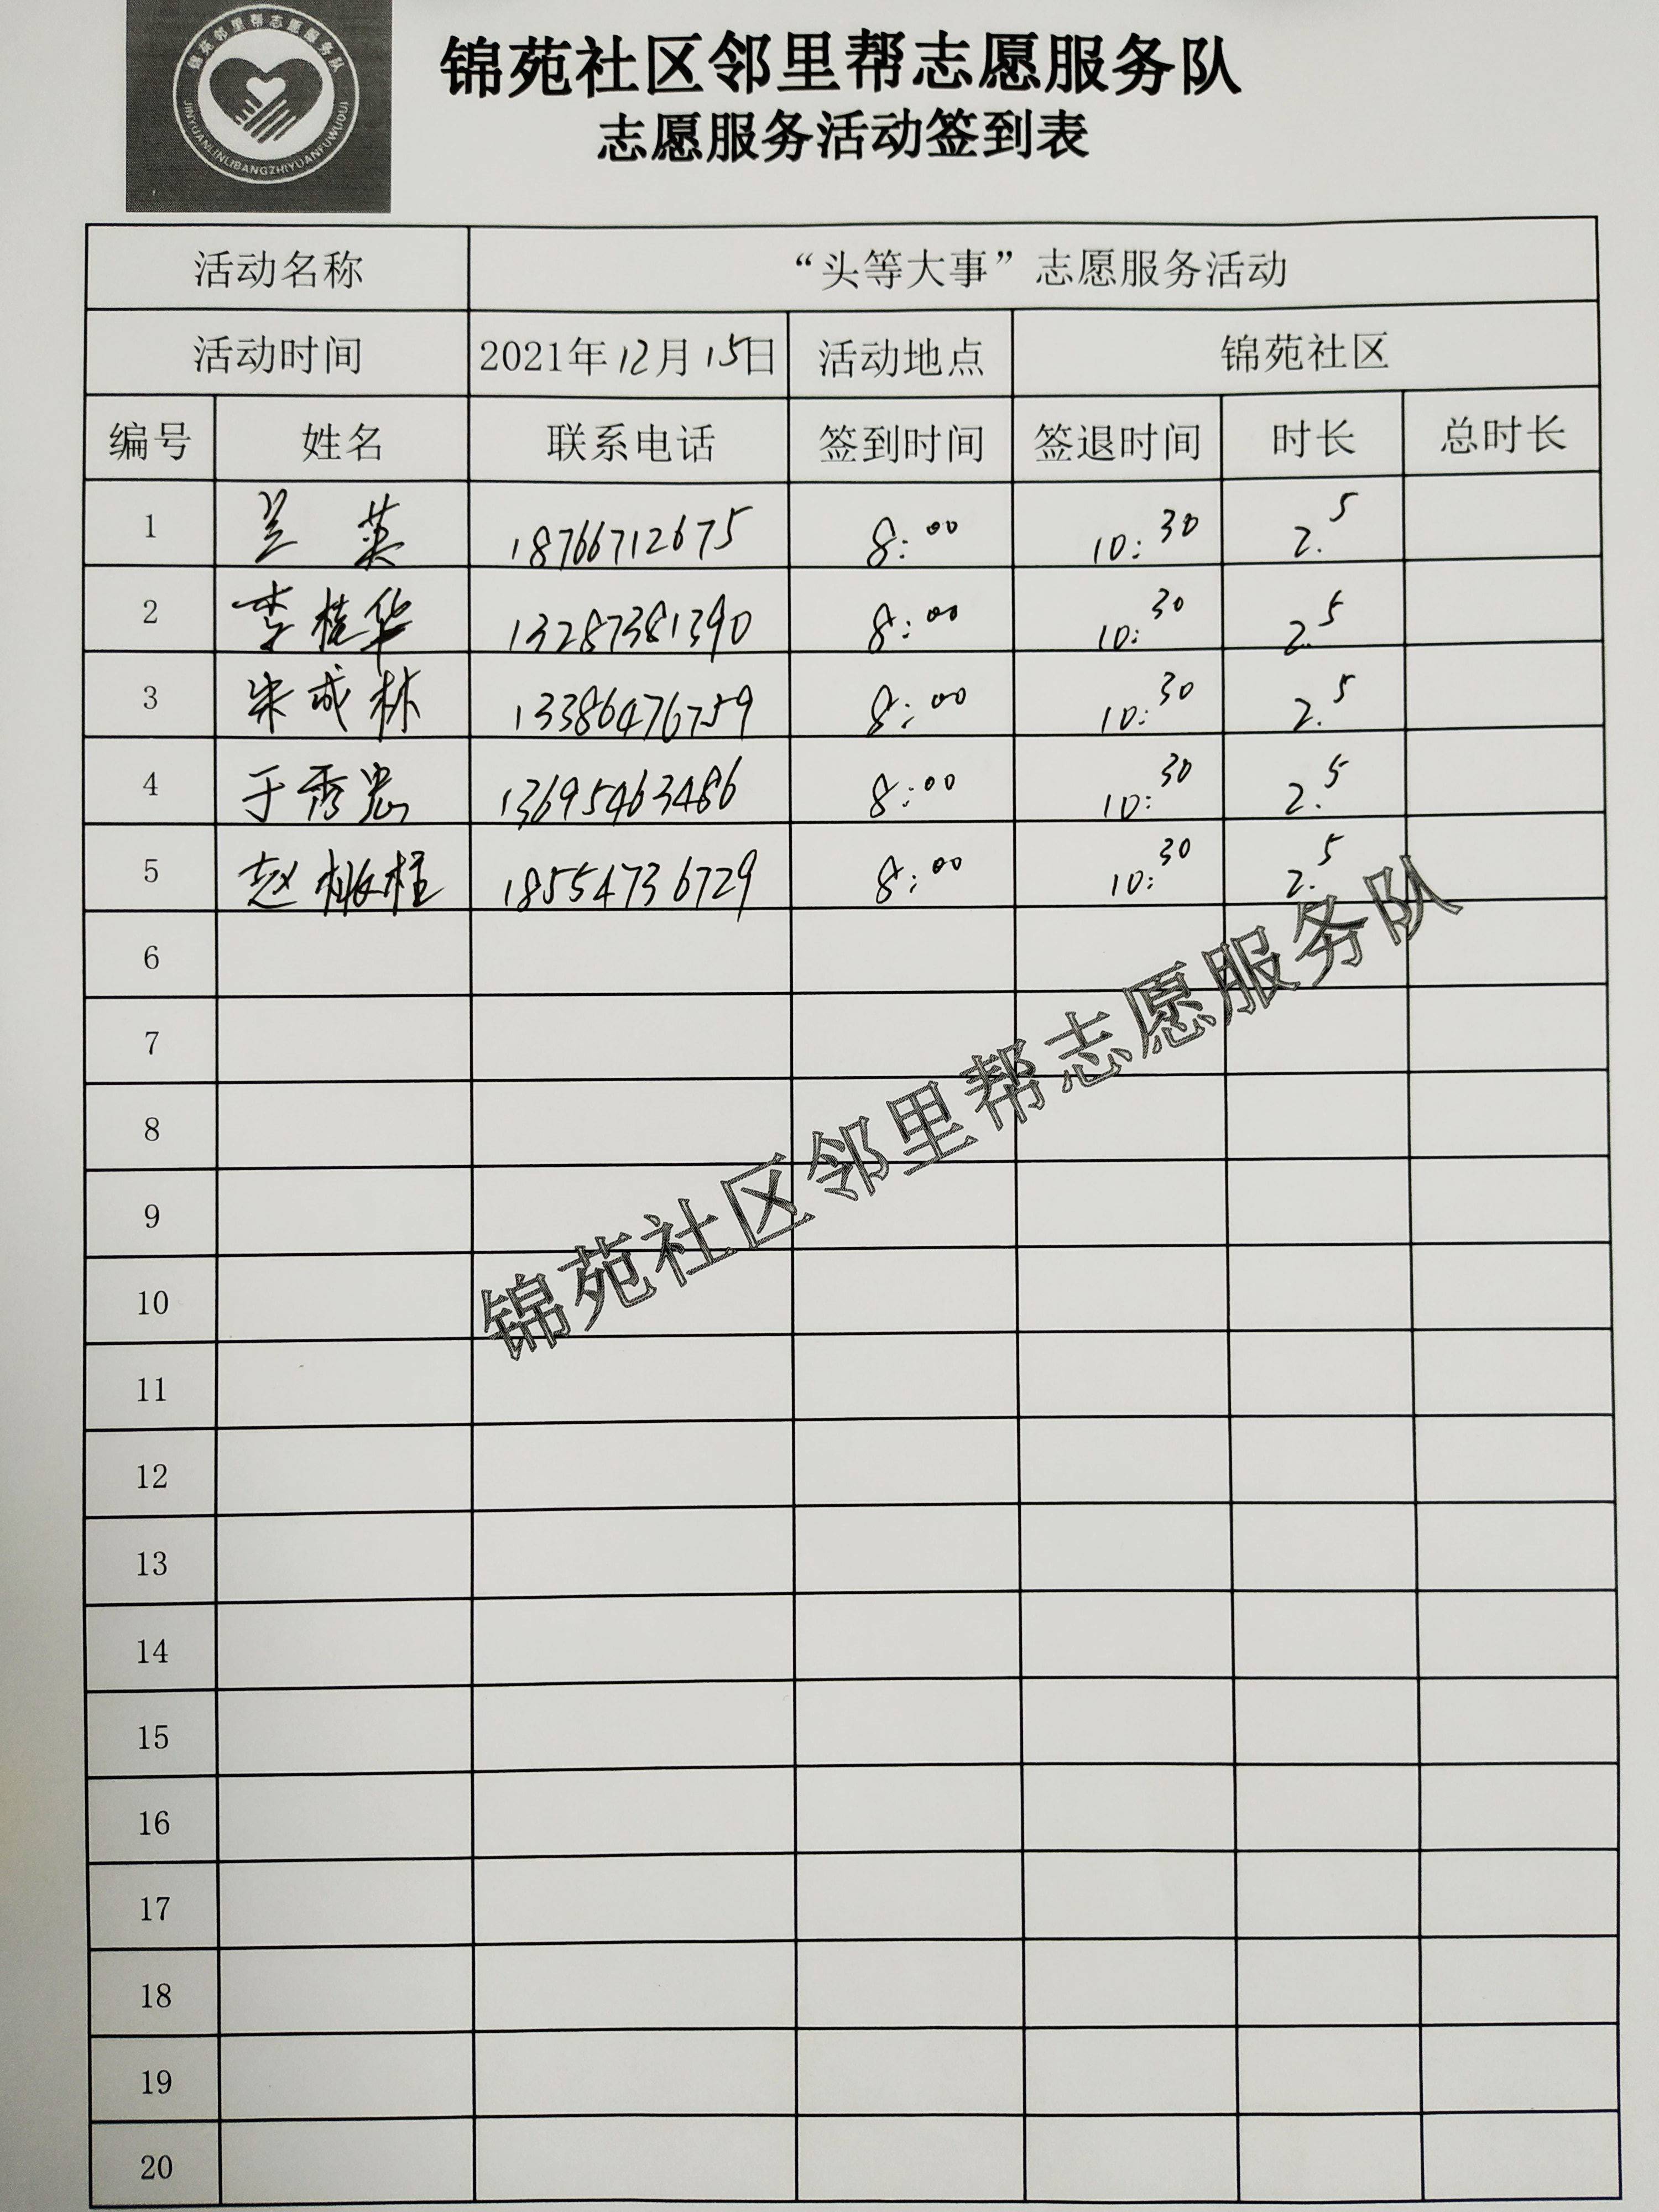 锦苑邻里帮志愿服务队
JINYUANLINLIBANGZHIYUANFUWUDUI
锦苑社区邻里帮志愿服务队
志愿服务活动签到表
活动名称 “头等大事”志愿服务活动
活动时间 2021年12月15日 活动地点 锦苑社区
编号 姓名 联系电话 签到时间 签退时间 时长 总时长
1 兰英 18766712675 8:00 10:30 2.5
2 李桂华 13287381390 8:00 10:30 2.5
3 宋成林 13386476759 8:00 10:30 2.5
4 于秀忠 13695463486 8:00 10:30 2.5
5 赵桃柱 18554736729 8:00 10:30 2.5
6
7
8
9
10
11
12
13
14
15
16
17
18
19
20
锦苑社区邻里帮志愿服务队